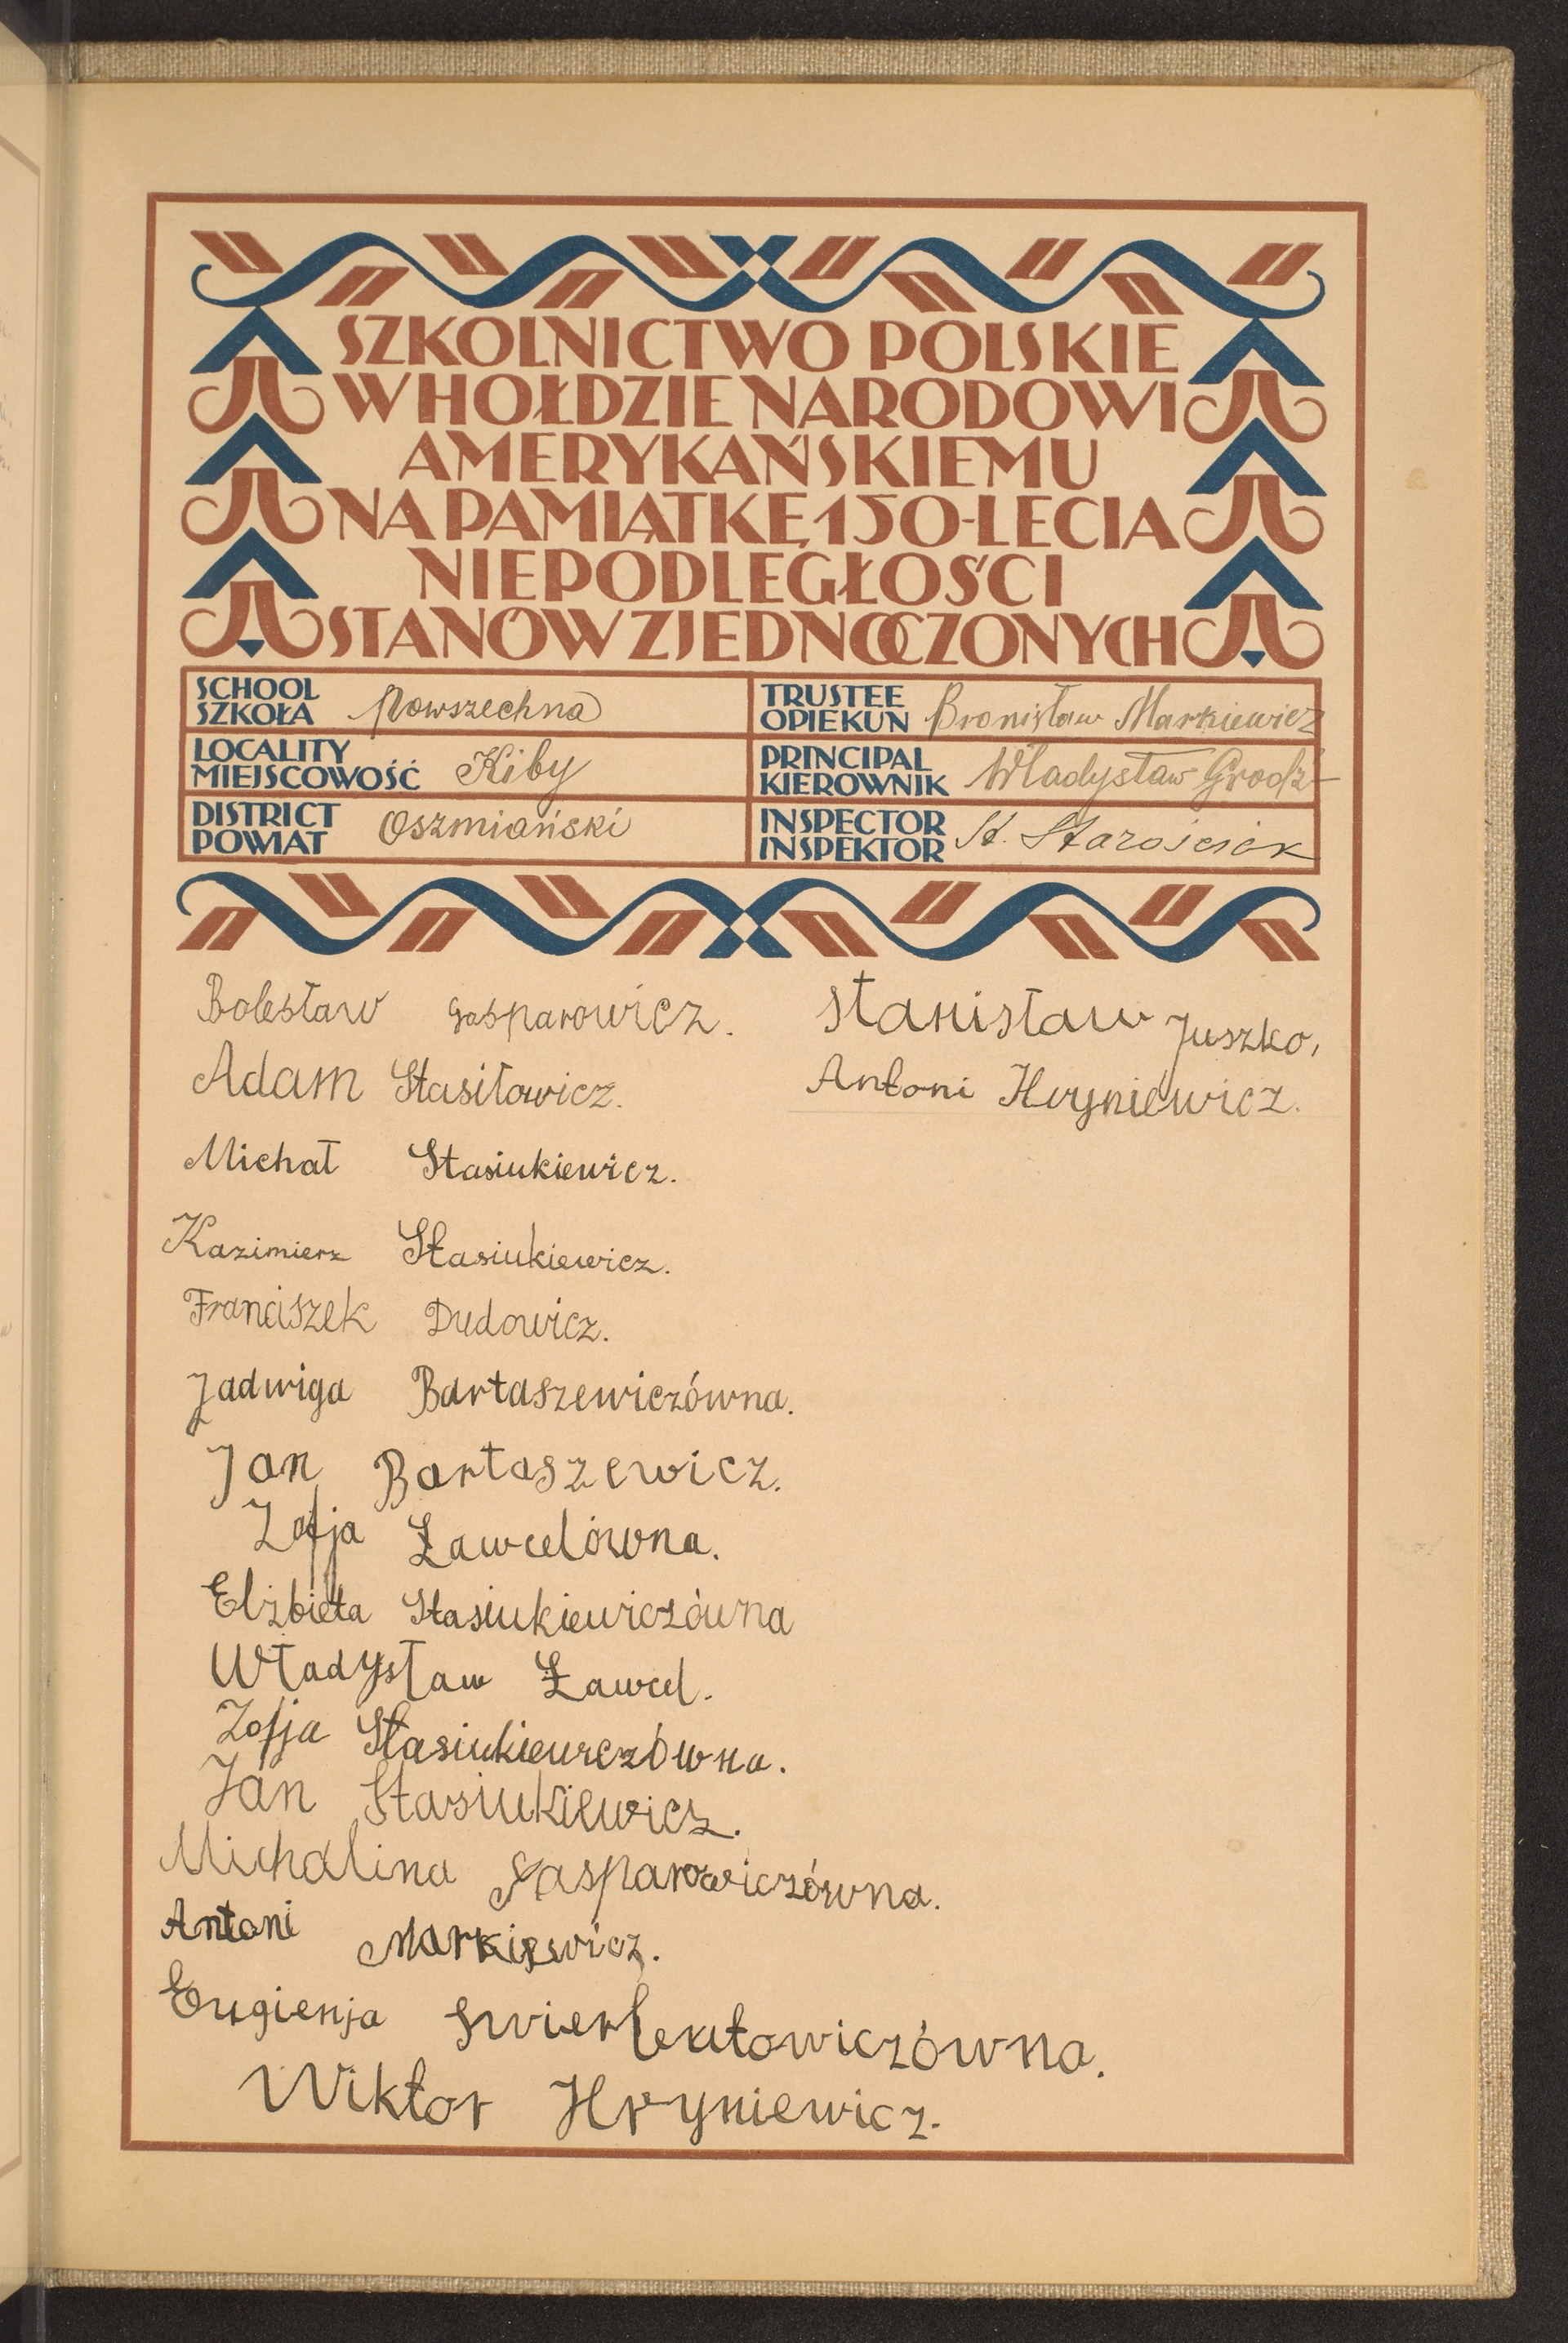 SZKOLNICTWO POLSKIE
W HOŁDZIE NARODOWI
AMERYKAŃSKIEMU
NA PAMIĄTKĘ 150-LECIA
NIEPODLEGŁOŚCI
STANÓW ZJEDNOCZONYCH
SCHOOL
SZKOŁA Powszechna
TRUSTEE
OPIEKUN Bronisław Markiewicz
LOCALITY
MIEJSCOWOŚĆ Kiby
PRINCIPAL
KIEROWNIK Władysław Grodź
DISTRICT
POWIAT Oszmiański
INSPECTOR
INSPEKTOR St. Starościak
Bolesław Gasparowicz.
Adam Stasiłowicz.
Michał Stasiukiewicz.
Kazimierz Stasiukiewicz.
Franciszek Dudowicz.
Jadwiga Bartaszewiczówna.
Jan Bartaszewicz.
Zofja Ławcelówna.
Elżbieta Stasiukiewiczówna
Władysław Ławcel.
Zofja Stasiukiewiczówna.
Jan Stasiukiewicz.
Michalina Gasparowiczówna.
Antoni Markiewicz.
Eugienja
Wiktor Hryniewicz.
Stanisław Juszko,
Antoni Hryniewicz.